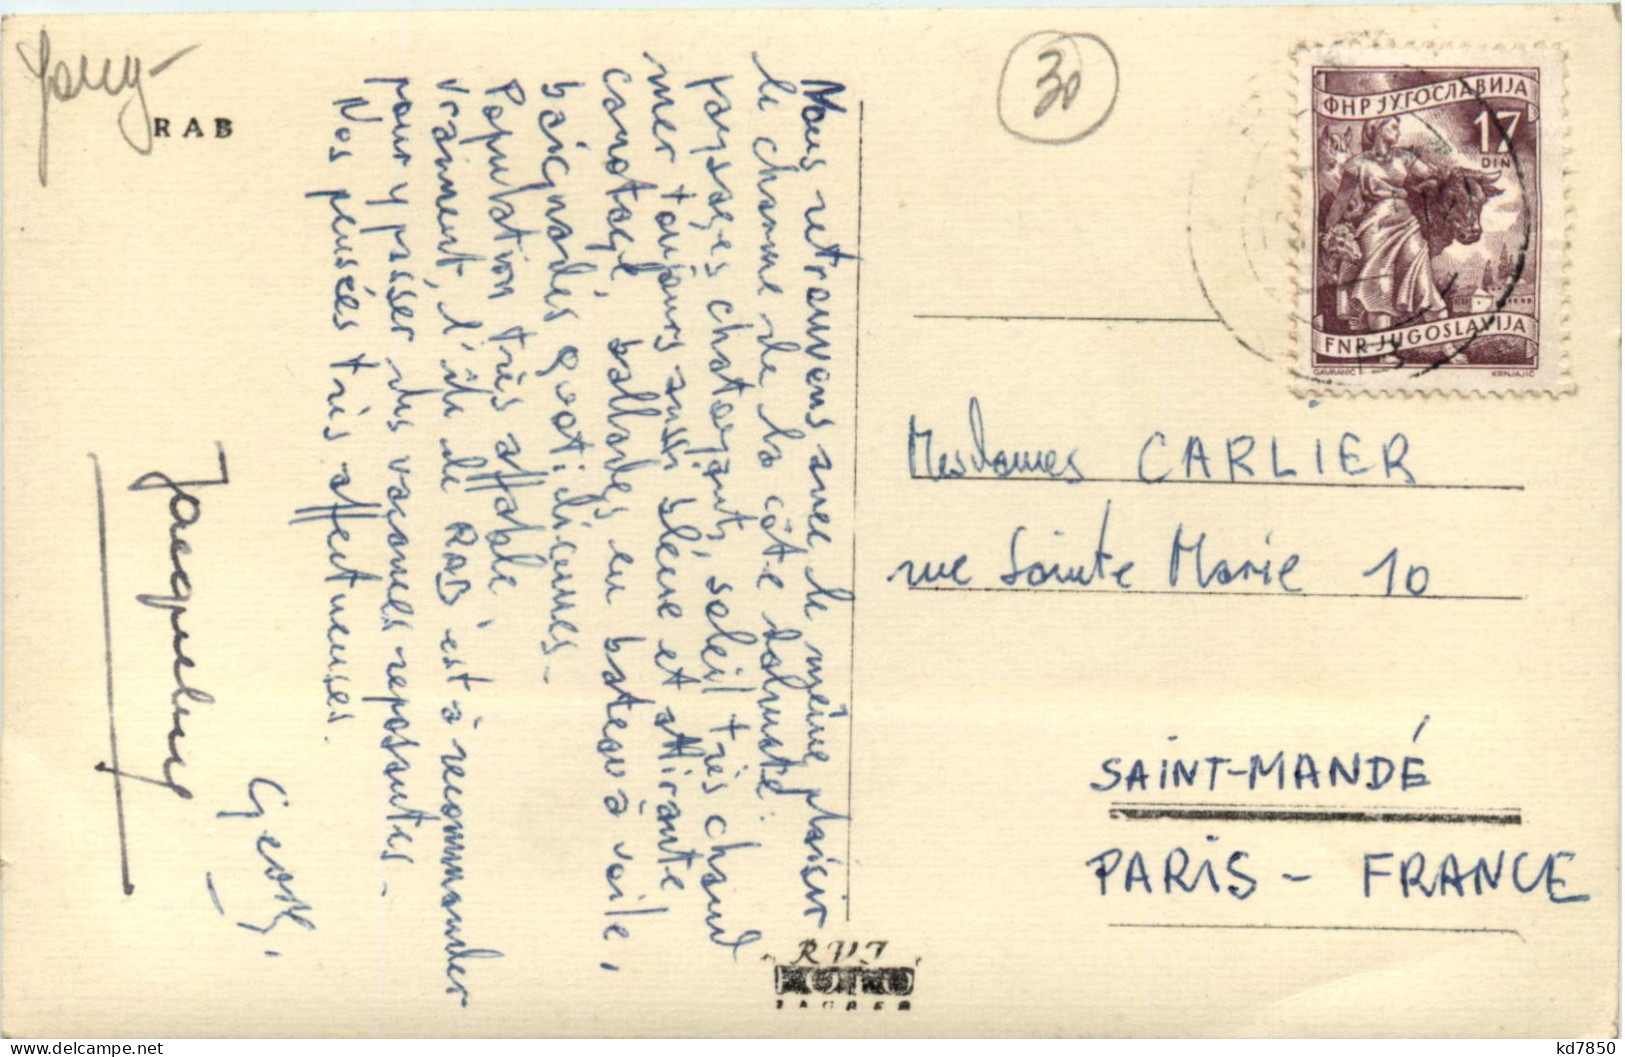 RAB
30
Nous retrouvons avec le même plaisir
le charme de la côte dalmate:
paysages chatoyants, soleil très chaud
mer toujours aussi bleue et attirante
canotage, ballades en bateau à voile,
baignades quotidiennes -
Population très affable
vraiment, l'île de RAB est à recommander
pour y passer des vacances reposantes -
Nos pensées très affectueuses.
Georges
Jacqueline
ФНР ЈУГОСЛАВИЈА
17
DIN
FNR JUGOSLAVIJA
GAVRANIĆ
KRNJAJIĆ
Mesdames CARLIER
rue Sainte Marie 10
SAINT-MANDÉ
PARIS - FRANCE
FOTO
ZAGREB
kd7850